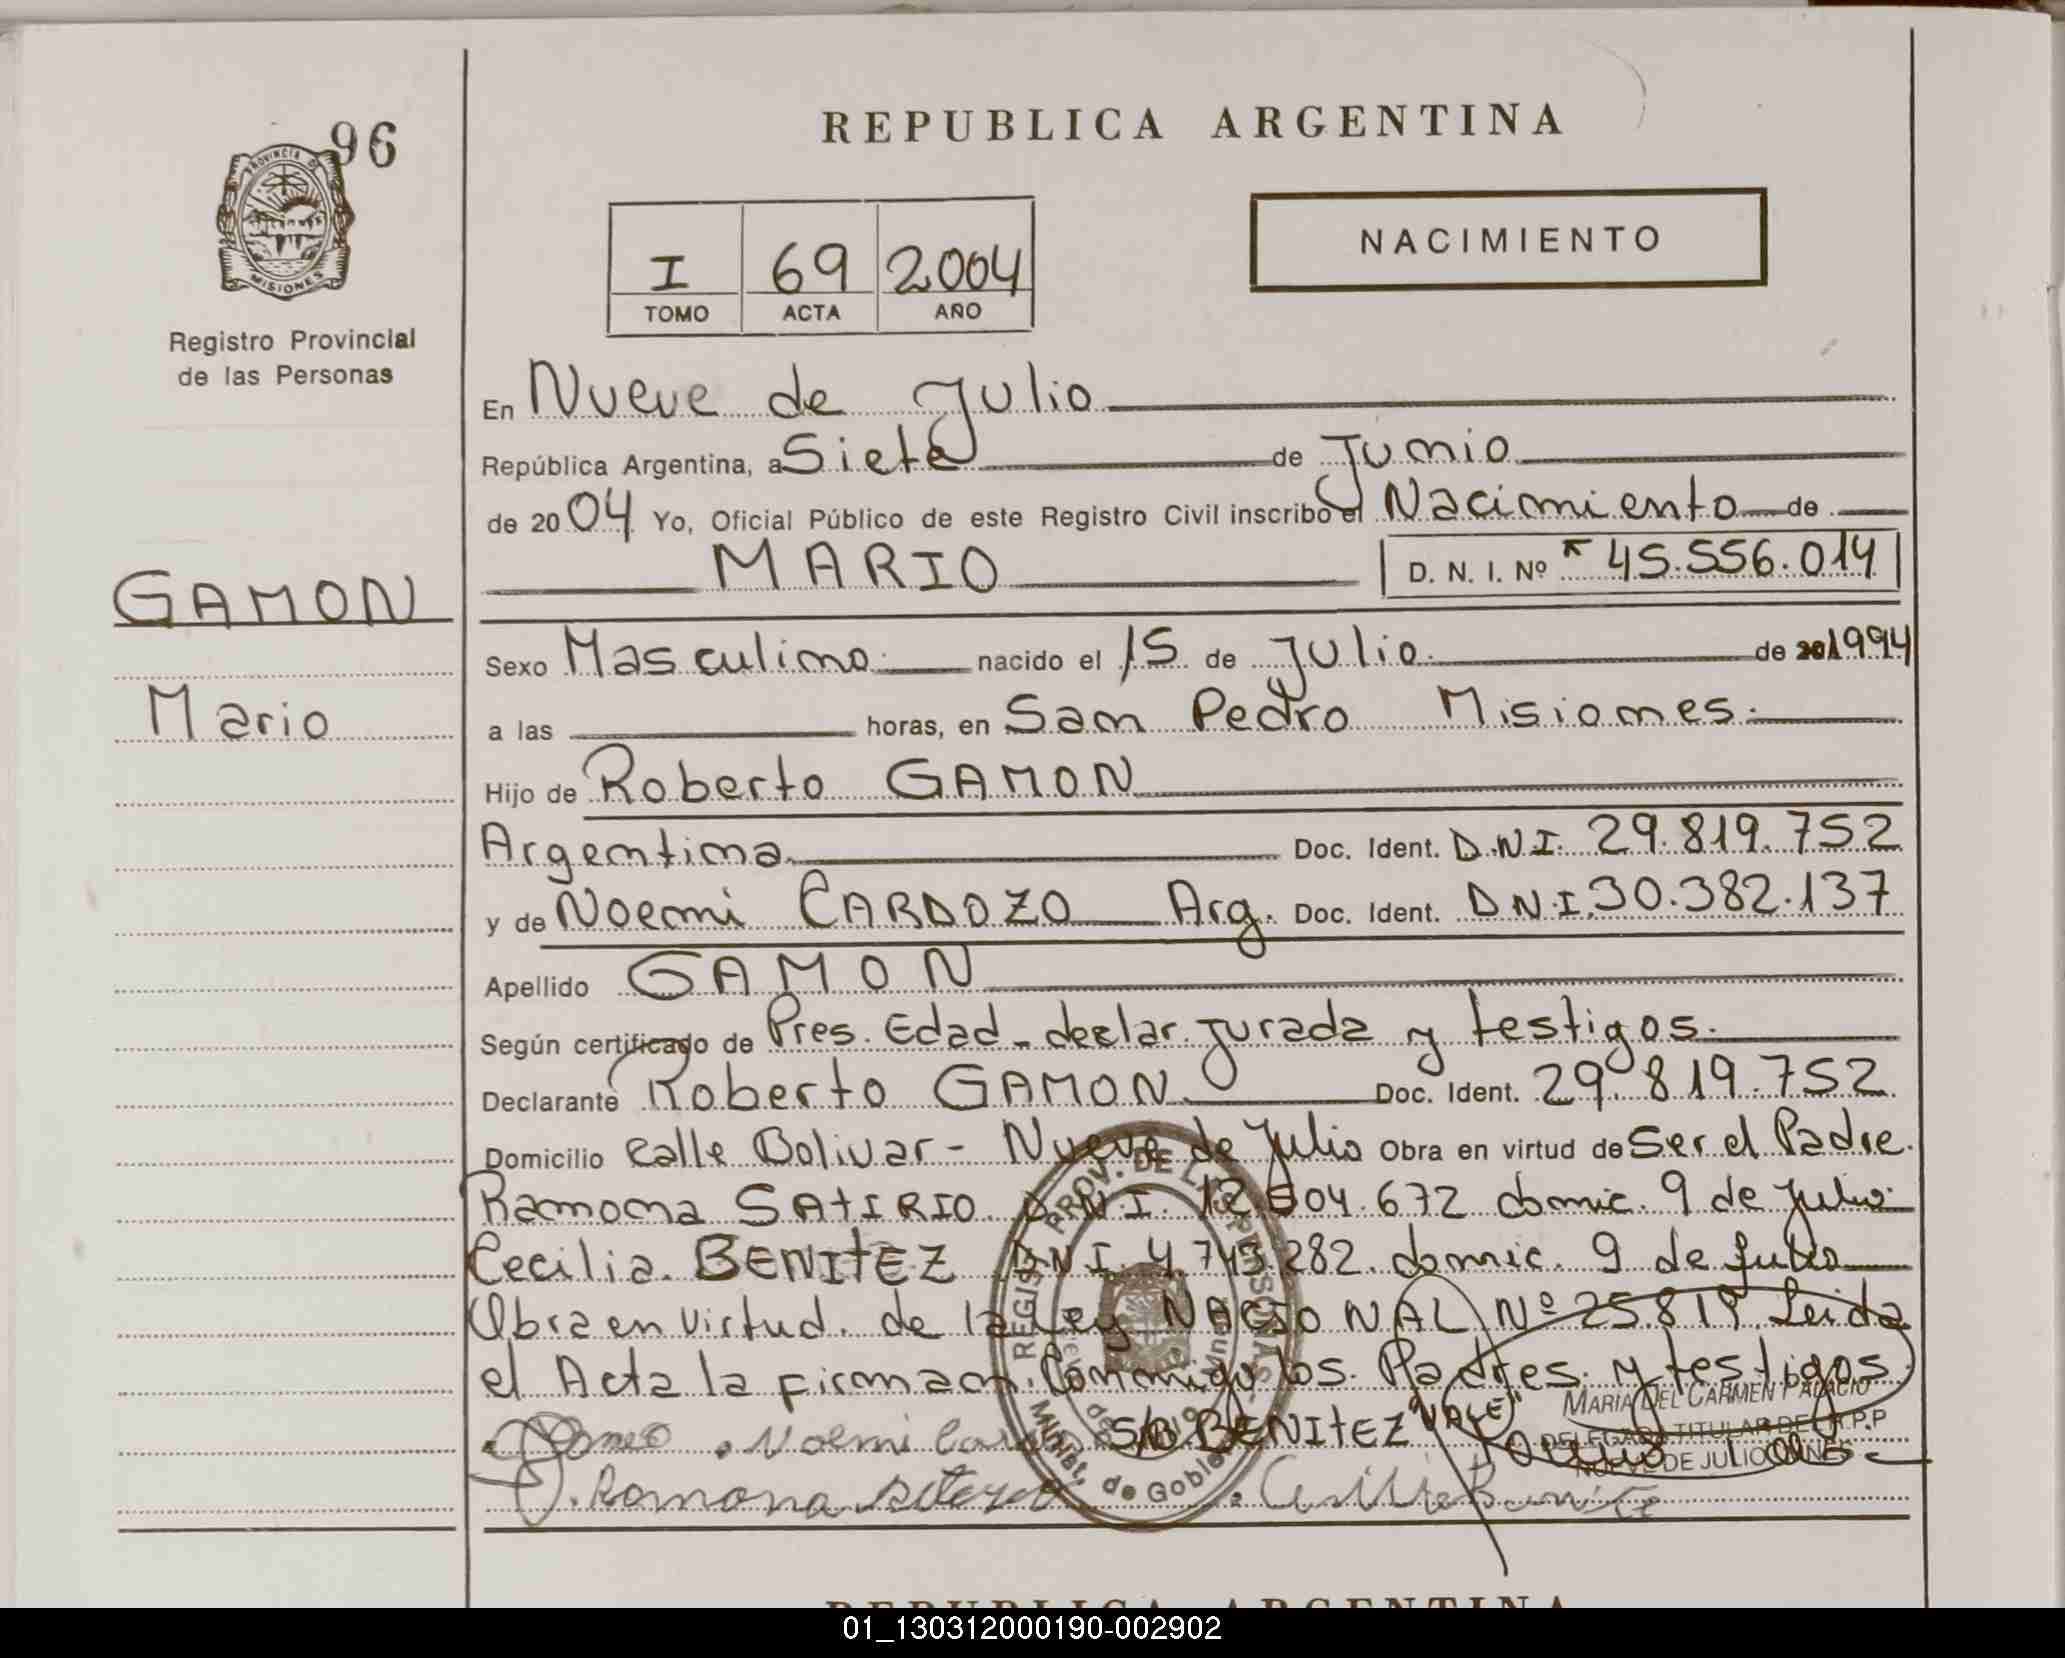 REPUBLICA ARGENTINA
96
PROVINCIA DE
MISIONES
Registro Provincial
de las Personas
I 69 2004
TOMO ACTA AÑO
NACIMIENTO
En Nueve de Julio
República Argentina, a Siete de Junio
de 2004 Yo, Oficial Público de este Registro Civil inscribo el Nacimiento de
MARIO D. N. I. Nº 45.556.014
GAMON
Mario
Sexo Masculino nacido el 15 de Julio de 1994
a las horas, en San Pedro Misiones.
Hijo de Roberto GAMON
Argentina Doc. Ident. D.N.I. 29.819.752
y de Noemi CARDOZO Arg. Doc. Ident. D.N.I. 30.382.137
Apellido GAMON
Según certificado de Pres. Edad - declar. jurada y testigos.
Declarante Roberto GAMON Doc. Ident. 29.819.752
Domicilio calle Bolivar - Nueve de Julio Obra en virtud de Ser el Padre.
Ramona SATIRIO D.N.I. 12. 04.672 domic. 9 de Julio
Cecilia BENITEZ D.N.I. 4.743.282. domic. 9 de Julio
Obra en virtud. de la Ley NACIONAL Nº 25.819 Leida
el Acta la firman Conmigo los Padres y testigos
S/B BENITEZ "VALE"
MARIA DEL CARMEN PALACIO
DELEGADA TITULAR DEL R.P.P
NUEVE DE JULIO
Noemi
Ramona
REGIST. PROV. DE LAS PERSONAS
Minist. de Gobierno
REPUBLICA ARGENTINA
01_130312000190-002902